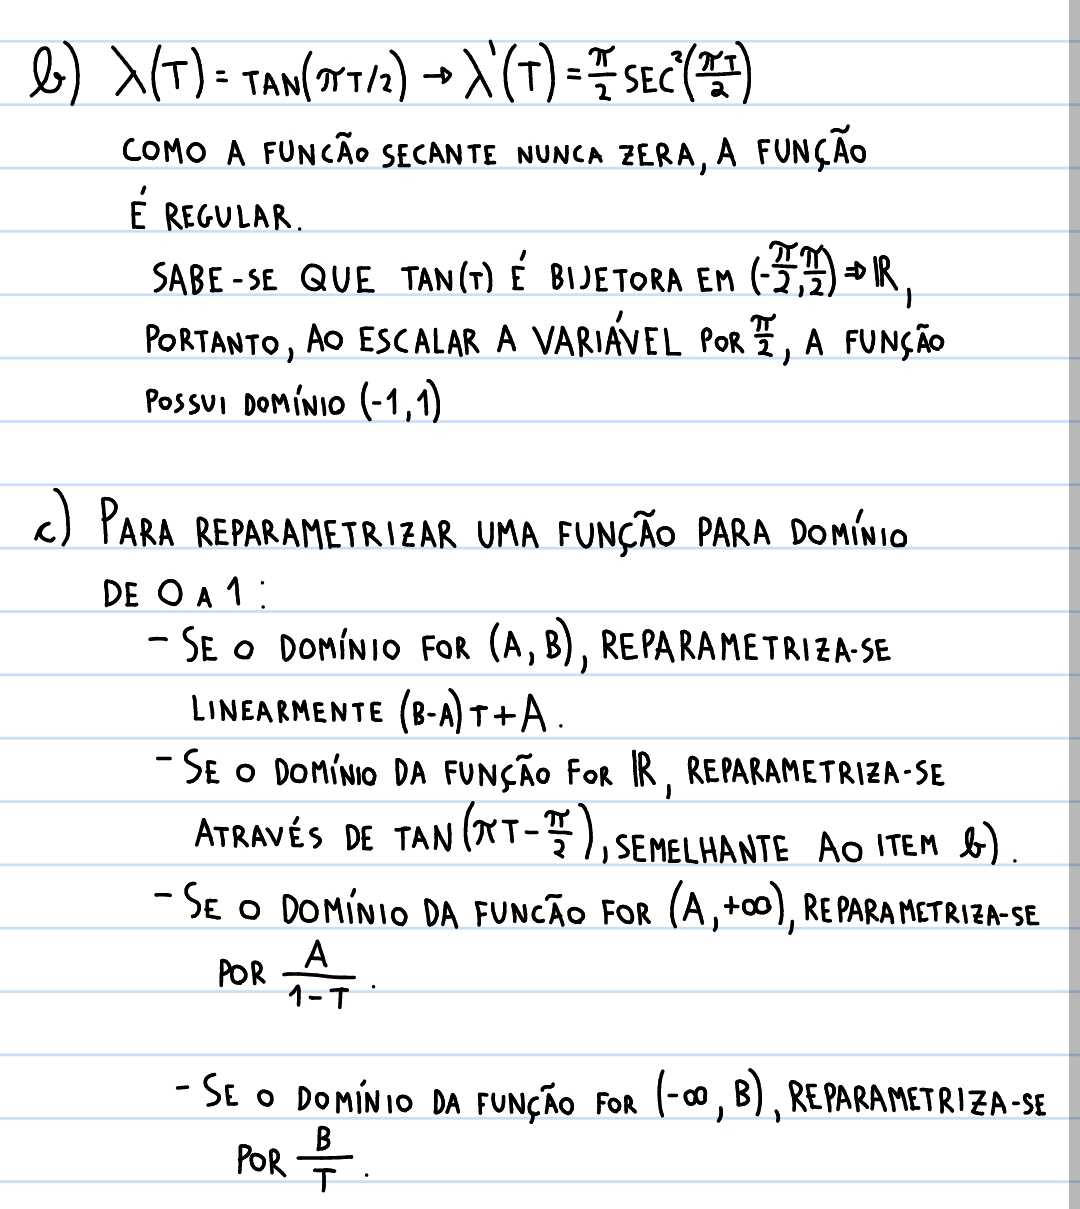 b) λ(T) = TAN(πT/2) → λ'(T) = π/2 SEC²(πT/2)
COMO A FUNCÃO SECANTE NUNCA ZERA, A FUNÇÃO
É REGULAR.
SABE-SE QUE TAN(T) É BIJETORA EM (-π/2, π/2) ⇒ ℝ,
PORTANTO, AO ESCALAR A VARIÁVEL POR π/2, A FUNÇÃO
POSSUI DOMÍNIO (-1,1)
c) PARA REPARAMETRIZAR UMA FUNÇÃO PARA DOMÍNIO
DE 0 A 1:
- SE O DOMÍNIO FOR (A, B), REPARAMETRIZA-SE
LINEARMENTE (B-A)T+A.
- SE O DOMÍNIO DA FUNÇÃO FOR ℝ, REPARAMETRIZA-SE
ATRAVÉS DE TAN(πT-π/2), SEMELHANTE AO ITEM b).
- SE O DOMÍNIO DA FUNCÃO FOR (A,+∞), REPARAMETRIZA-SE
POR A/(1-T).
- SE O DOMÍNIO DA FUNÇÃO FOR (-∞, B), REPARAMETRIZA-SE
POR B/T.